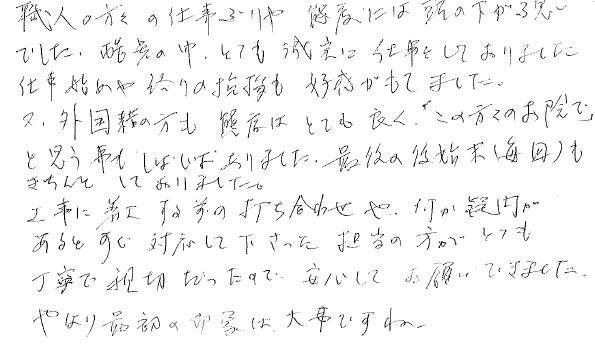 職人の方々の仕事ぶりや態度には頭の下がる思い
でした。酷暑の中、とても誠実に仕事をしておりました
仕事始めや終りの挨拶も好感がもてました。
又、外国籍の方も態度はとても良く、“この方々のお陰で”
と思う事もしばしばありました。最後の後始末(毎回)も
きちんとしておりました。
工事に着工する前の打ち合わせや、何か疑問が
あるとすぐ対応して下さった担当の方がとても
丁寧で親切だったので、安心してお願いできました。
やはり最初の印象は大事ですね。